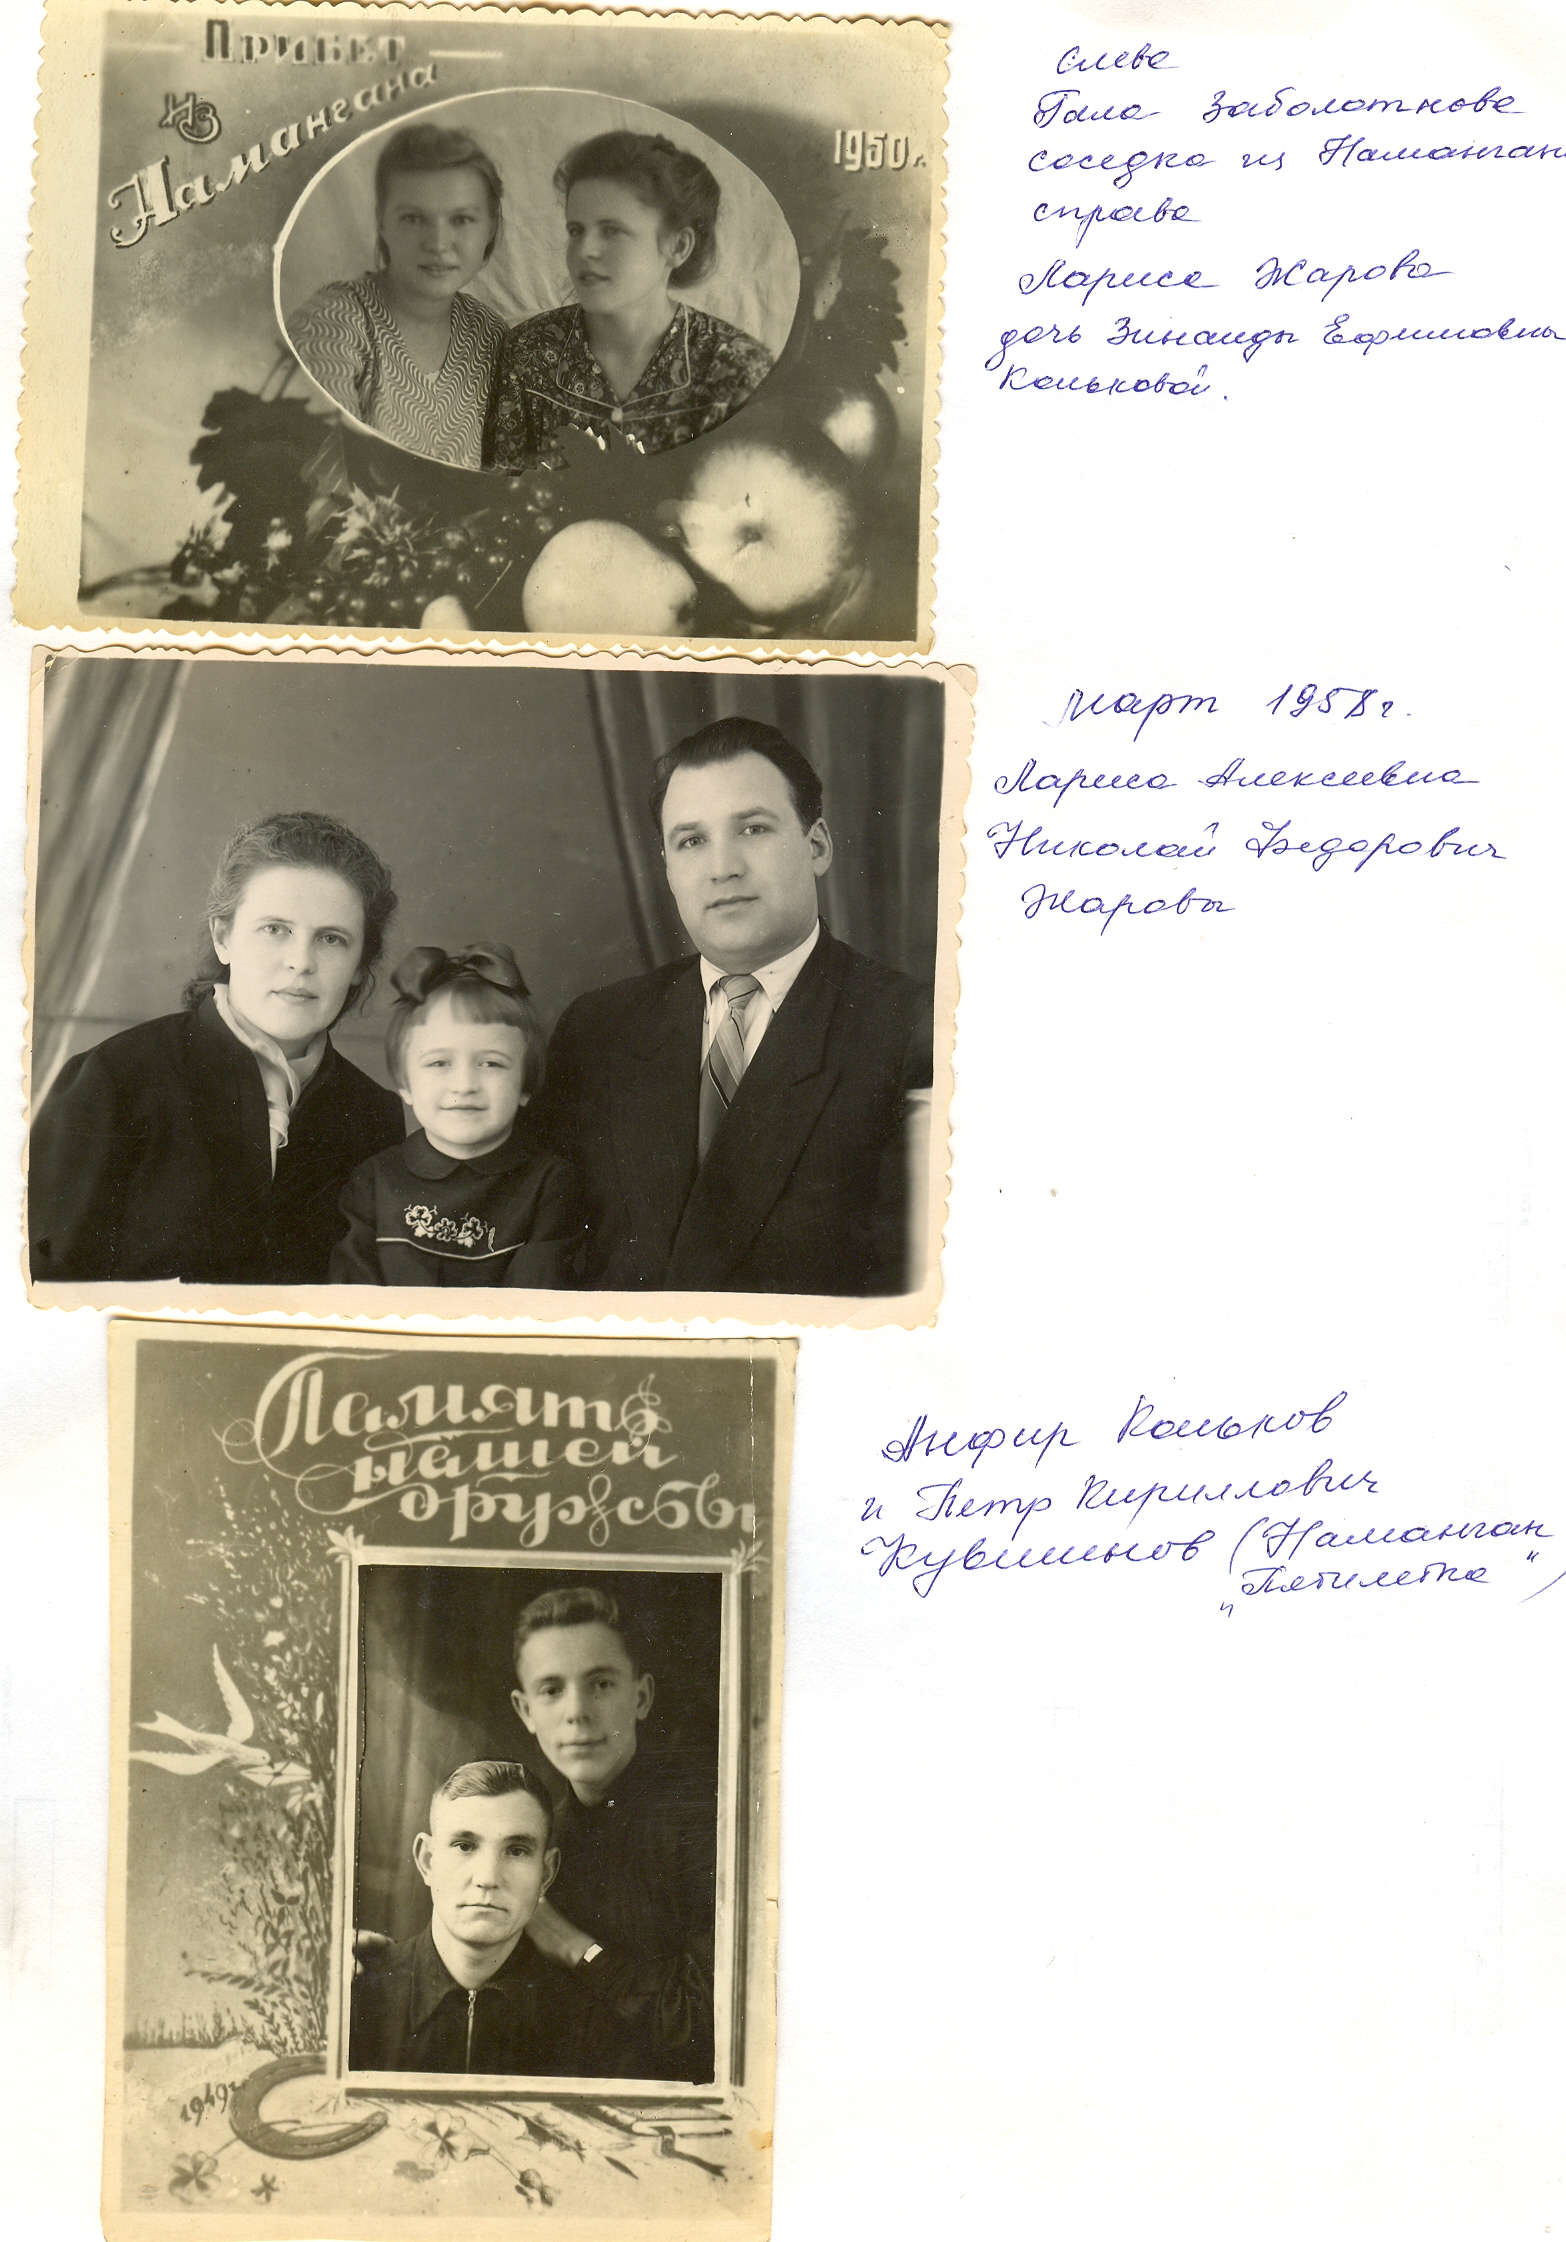 Привет
из
Намангана
1950 г.
слева
Гала Заболотнова
соседка из Наманган
справа
Лариса Жарова
дочь Зинаиды Ефимовны
Коньковой.
Март 1958 г.
Лариса Алексеевна
Николай Федорович
Жаровы
Память
нашей
дружбы
1949 г.
Анфир Коньков
и Петр Кириллович
Кувшинов (Наманган
"Пятилетка")